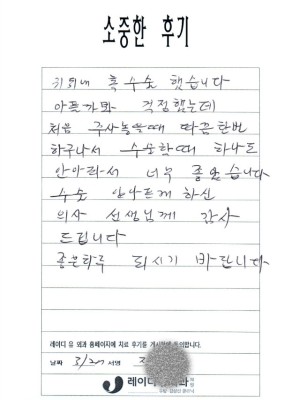 소중한 후기
귀뒤내 혹 수술 했습니다
아플까봐 걱정했는데
처음 주사놓을때 따끔한번
하구나서 수술할때 하나도
안아파서 너무 좋았습니다
수술 안아프게 하신
의사 선생님께 감사
드립니다
좋은하루 되시기 바랍니다
레이디 유 외과 홈페이지에 치료 후기를 게시 동의합니다.
날짜 3/20 서명
레이디 외과